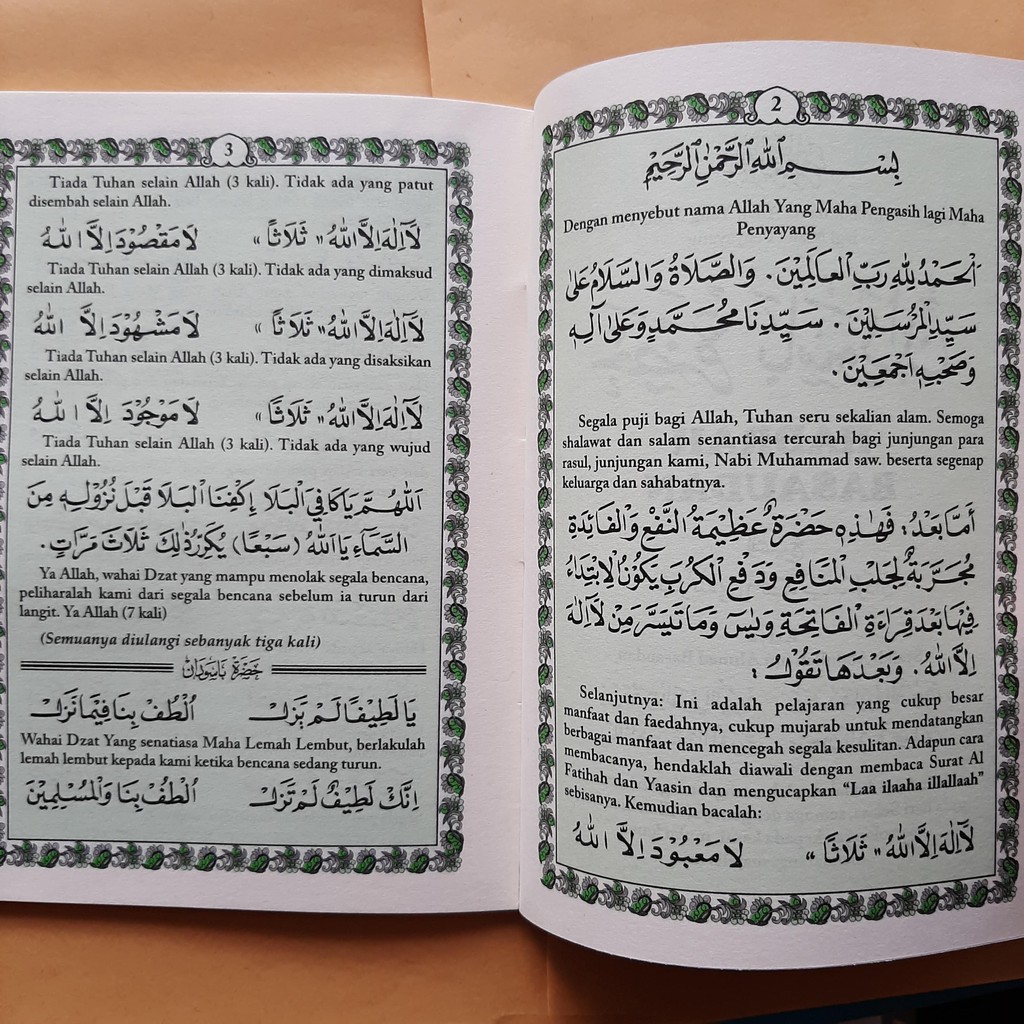 2
بِسْــــمِ اللهِ الرَّحْمٰنِ الرَّحِيْمِ
Dengan menyebut nama Allah Yang Maha Pengasih lagi Maha
Penyayang
اَلْحَمْدُ لِلّٰهِ رَبِّ الْعَالَمِيْنَ. وَالصَّلَاةُ وَالسَّلَامُ عَلٰى
سَيِّدِ الْمُرْسَلِيْنَ. سَيِّدِنَا مُحَمَّدٍ وَعَلٰى آلِهِ
وَصَحْبِهِ اَجْمَعِيْنَ.
Segala puji bagi Allah, Tuhan seru sekalian alam. Semoga
shalawat dan salam senantiasa tercurah bagi junjungan para
rasul, junjungan kami, Nabi Muhammad saw. beserta segenap
keluarga dan sahabatnya.
أَمَّا بَعْدُ: فَهٰذِهِ حَضْرَةٌ عَظِيْمَةُ النَّفْعِ وَالْفَائِدَةِ
مُجَرَّبَةٌ لِجَلْبِ الْمَنَافِعِ وَدَفْعِ الْكُرَبِ يَكُوْنُ الْاِبْتِدَاءُ
فِيْهَا بَعْدَ قِرَاءَةِ الْفَاتِحَةِ وَيٰسٓ وَمَا تَيَسَّرَ مِنْ لَآاِلٰهَ
اِلَّا اللهُ. وَبَعْدَهَا تَقُوْلُ:
Selanjutnya: Ini adalah pelajaran yang cukup besar
manfaat dan faedahnya, cukup mujarab untuk mendatangkan
berbagai manfaat dan mencegah segala kesulitan. Adapun cara
membacanya, hendaklah diawali dengan membaca Surat Al
Fatihah dan Yaasin dan mengucapkan “Laa ilaaha illallaah”
sebisanya. Kemudian bacalah:
لَآاِلٰهَ اِلَّا اللهُ «ثَلَاثًا» لَا مَعْبُوْدَ اِلَّا اللهُ
3
Tiada Tuhan selain Allah (3 kali). Tidak ada yang patut
disembah selain Allah.
لَآاِلٰهَ اِلَّا اللهُ «ثَلَاثًا» لَا مَقْصُوْدَ اِلَّا اللهُ
Tiada Tuhan selain Allah (3 kali). Tidak ada yang dimaksud
selain Allah.
لَآاِلٰهَ اِلَّا اللهُ «ثَلَاثًا» لَا مَشْهُوْدَ اِلَّا اللهُ
Tiada Tuhan selain Allah (3 kali). Tidak ada yang disaksikan
selain Allah.
لَآاِلٰهَ اِلَّا اللهُ «ثَلَاثًا» لَا مَوْجُوْدَ اِلَّا اللهُ
Tiada Tuhan selain Allah (3 kali). Tidak ada yang wujud
selain Allah.
اَللّٰهُمَّ يَاكَافِيَ الْبَلَا اِكْفِنَا الْبَلَا قَبْلَ نُزُوْلِهِ مِنَ
السَّمَآءِ يَااَللهُ (سَبْعًا) يُكَرَّرُ ذٰلِكَ ثَلَاثَ مَرَّاتٍ.
Ya Allah, wahai Dzat yang mampu menolak segala bencana,
peliharalah kami dari segala bencana sebelum ia turun dari
langit. Ya Allah (7 kali)
(Semuanya diulangi sebanyak tiga kali)
حَضْرَةُ بَاسَوْدَانْ
يَا لَطِيْفًا لَمْ يَزَلْ اُلْطُفْ بِنَا فِيْمَا نَزَلْ
Wahai Dzat Yang senatiasa Maha Lemah Lembut, berlakulah
lemah lembut kepada kami ketika bencana sedang turun.
اِنَّكَ لَطِيْفٌ لَمْ تَزَلْ اُلْطُفْ بِنَا وَالْمُسْلِمِيْنَ